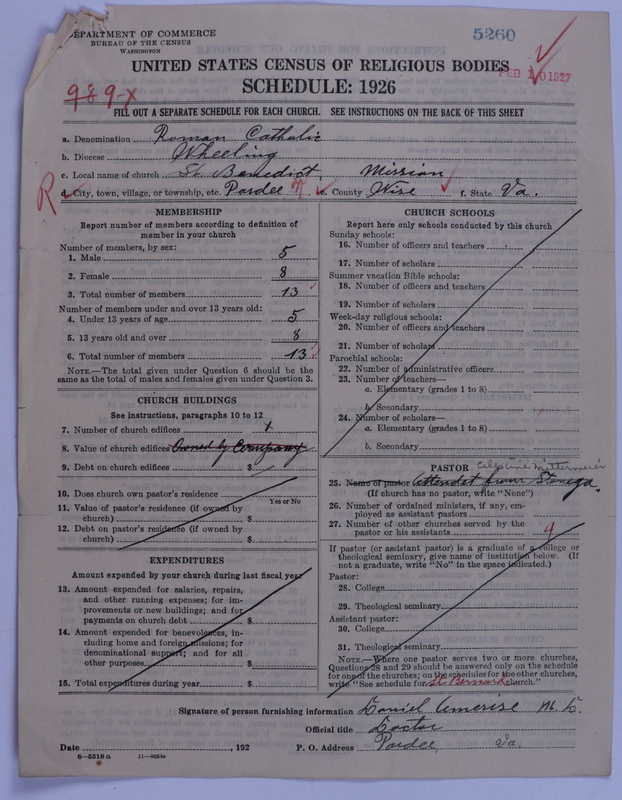 DEPARTMENT OF COMMERCE
BUREAU OF THE CENSUS
WASHINGTON
5260
FEB 10 1927
UNITED STATES CENSUS OF RELIGIOUS BODIES
SCHEDULE: 1926
989-x
FILL OUT A SEPARATE SCHEDULE FOR EACH CHURCH. SEE INSTRUCTIONS ON THE BACK OF THIS SHEET
a. Denomination Roman Catholic
b. Diocese Wheeling
c. Local name of church St. Benedict. Mission
R
d. City, town, village, or township, etc. Pardee e. County Wise f. State Va.
MEMBERSHIP
Report number of members according to definition of member in your church
Number of members, by sex:
1. Male 5
2. Female 8
3. Total number of members 13
Number of members under and over 13 years old:
4. Under 13 years of age 5
5. 13 years old and over 8
6. Total number of members 13
NOTE.—The total given under Question 6 should be the
same as the total of males and females given under Question 3.
CHURCH BUILDINGS
See instructions, paragraphs 10 to 12
7. Number of church edifices x
8. Value of church edifices Owned by Company
9. Debt on church edifices $
10. Does church own pastor's residence
Yes or No
11. Value of pastor's residence (if owned by
church) $
12. Debt on pastor's residence (if owned by
church) $
EXPENDITURES
Amount expended by your church during last fiscal year
13. Amount expended for salaries, repairs,
and other running expenses; for im-
provements or new buildings; and for
payments on church debt $
14. Amount expended for benevolences, in-
cluding home and foreign missions; for
denominational support; and for all
other purposes $
15. Total expenditures during year $
CHURCH SCHOOLS
Report here only schools conducted by this church
Sunday schools:
16. Number of officers and teachers
17. Number of scholars
Summer vacation Bible schools:
18. Number of officers and teachers
19. Number of scholars
Week-day religious schools:
20. Number of officers and teachers
21. Number of scholars
Parochial schools:
22. Number of administrative officers
23. Number of teachers—
a. Elementary (grades 1 to 8)
b. Secondary
24. Number of scholars—
a. Elementary (grades 1 to 8)
b. Secondary
PASTOR
25. Name of pastor attendet from Stonega.
(If church has no pastor, write "None")
26. Number of ordained ministers, if any, em-
ployed as assistant pastors
27. Number of other churches served by the
pastor or his assistants 4
If pastor (or assistant pastor) is a graduate of a college or
theological seminary, give name of institution below. (If
not a graduate, write "No" in the space indicated.)
Pastor:
28. College
29. Theological seminary
Assistant pastor:
30. College
31. Theological seminary
NOTE.—Where one pastor serves two or more churches,
Questions 28 and 29 should be answered only on the schedule
for one of the churches; on the schedules for the other churches,
write "See schedule for St Bernard church."
Signature of person furnishing information Daniel Amerise M. D.
Official title Doctor
Date , 192
P. O. Address Pardee, Va.
8—5518 a 11—9554a